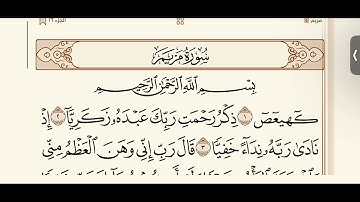 مريم الجزء ١٦
سُورَةُ مَرْيَمَ
بِسْمِ ٱللَّهِ ٱلرَّحْمَٰنِ ٱلرَّحِيمِ
كٓهيعٓصٓ ١ ذِكْرُ رَحْمَتِ رَبِّكَ عَبْدَهُۥ زَكَرِيَّآ ٢ إِذْ
نَادَىٰ رَبَّهُۥ نِدَآءً خَفِيًّا ٣ قَالَ رَبِّ إِنِّي وَهَنَ ٱلْعَظْمُ مِنِّي